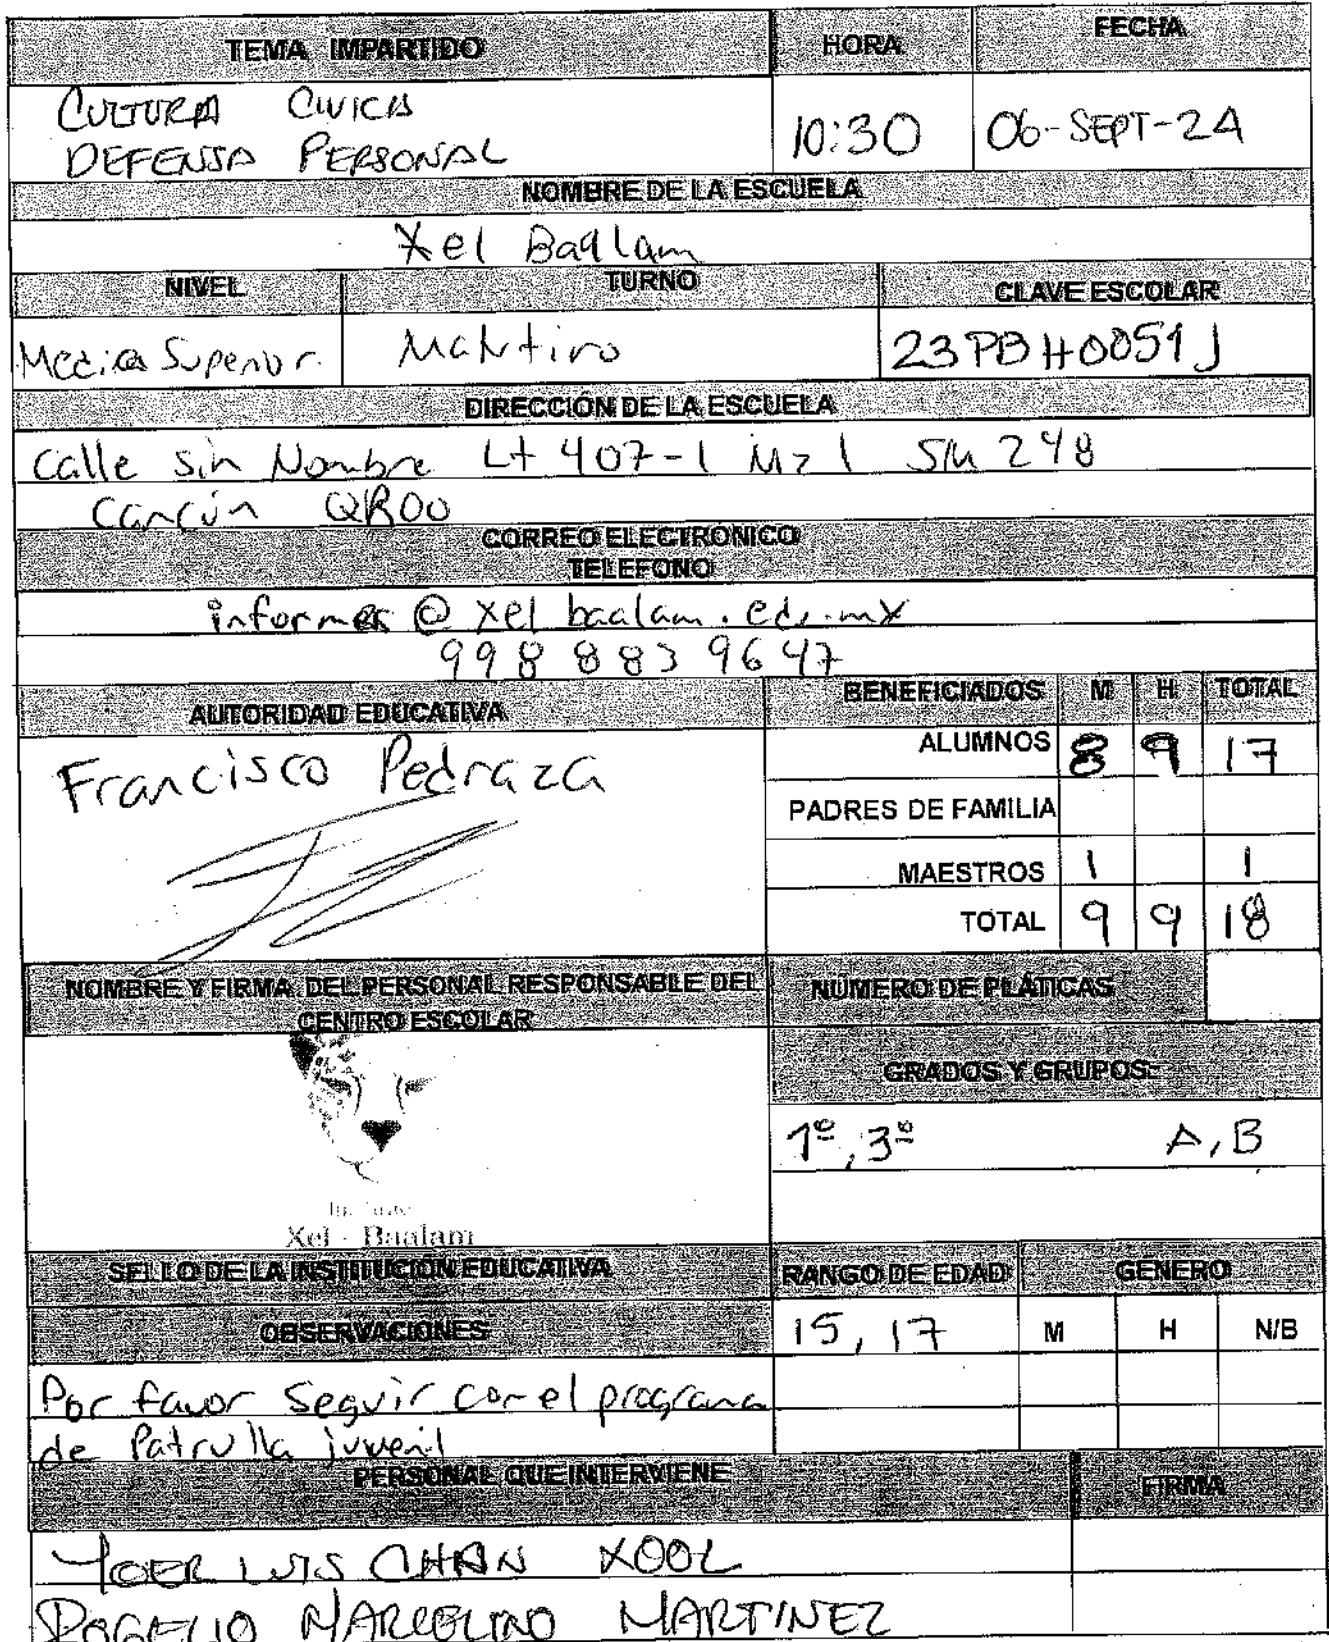 TEMA IMPARTIDO HORA FECHA
CULTURA CIVICA
DEFENSA PERSONAL 10:30 06-SEPT-24
NOMBRE DE LA ESCUELA
Xel Baalam
NIVEL TURNO CLAVE ESCOLAR
Media Superior Matutino 23PBH0051J
DIRECCIÓN DE LA ESCUELA
Calle sin Nombre Lt 407-1 Mz 1 SM 248
Cancún QROO
CORREO ELECTRONICO
TELEFONO
informes@xelbaalam.edu.mx
998 883 9647
AUTORIDAD EDUCATIVA BENEFICIADOS M H TOTAL
Francisco Pedraza
ALUMNOS 8 9 17
PADRES DE FAMILIA
MAESTROS 1 1
TOTAL 9 9 18
NOMBRE Y FIRMA DEL PERSONAL RESPONSABLE DEL CENTRO ESCOLAR
NÚMERO DE PLÁTICAS
GRADOS Y GRUPOS
1º, 3º A, B
Xel - Baalam
SELLO DE LA INSTITUCIÓN EDUCATIVA RANGO DE EDAD GÉNERO
OBSERVACIONES 15, 17 M H N/B
Por favor seguir con el programa
de Patrulla juvenil
PERSONAL QUE INTERVIENE FIRMA
YOER LUIS CHAN XOOL
ROGELIO MARCELINO MARTINEZ